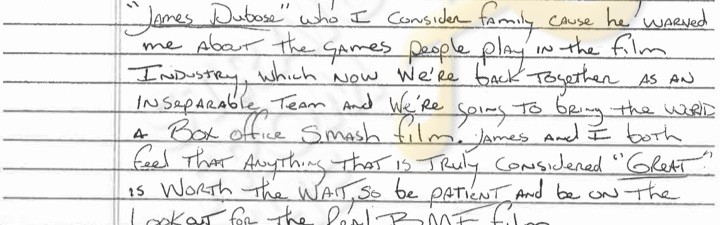 "James Dubose" who I consider family cause he warned
me about the games people play in the film
Industry, which now we're back together as an
inseparable team and we're going to bring the world
a Box office smash film. James and I both
feel that anything that is truly considered "GREAT"
is worth the wait, so be patient and be on the
Lookout for the Real BMF film